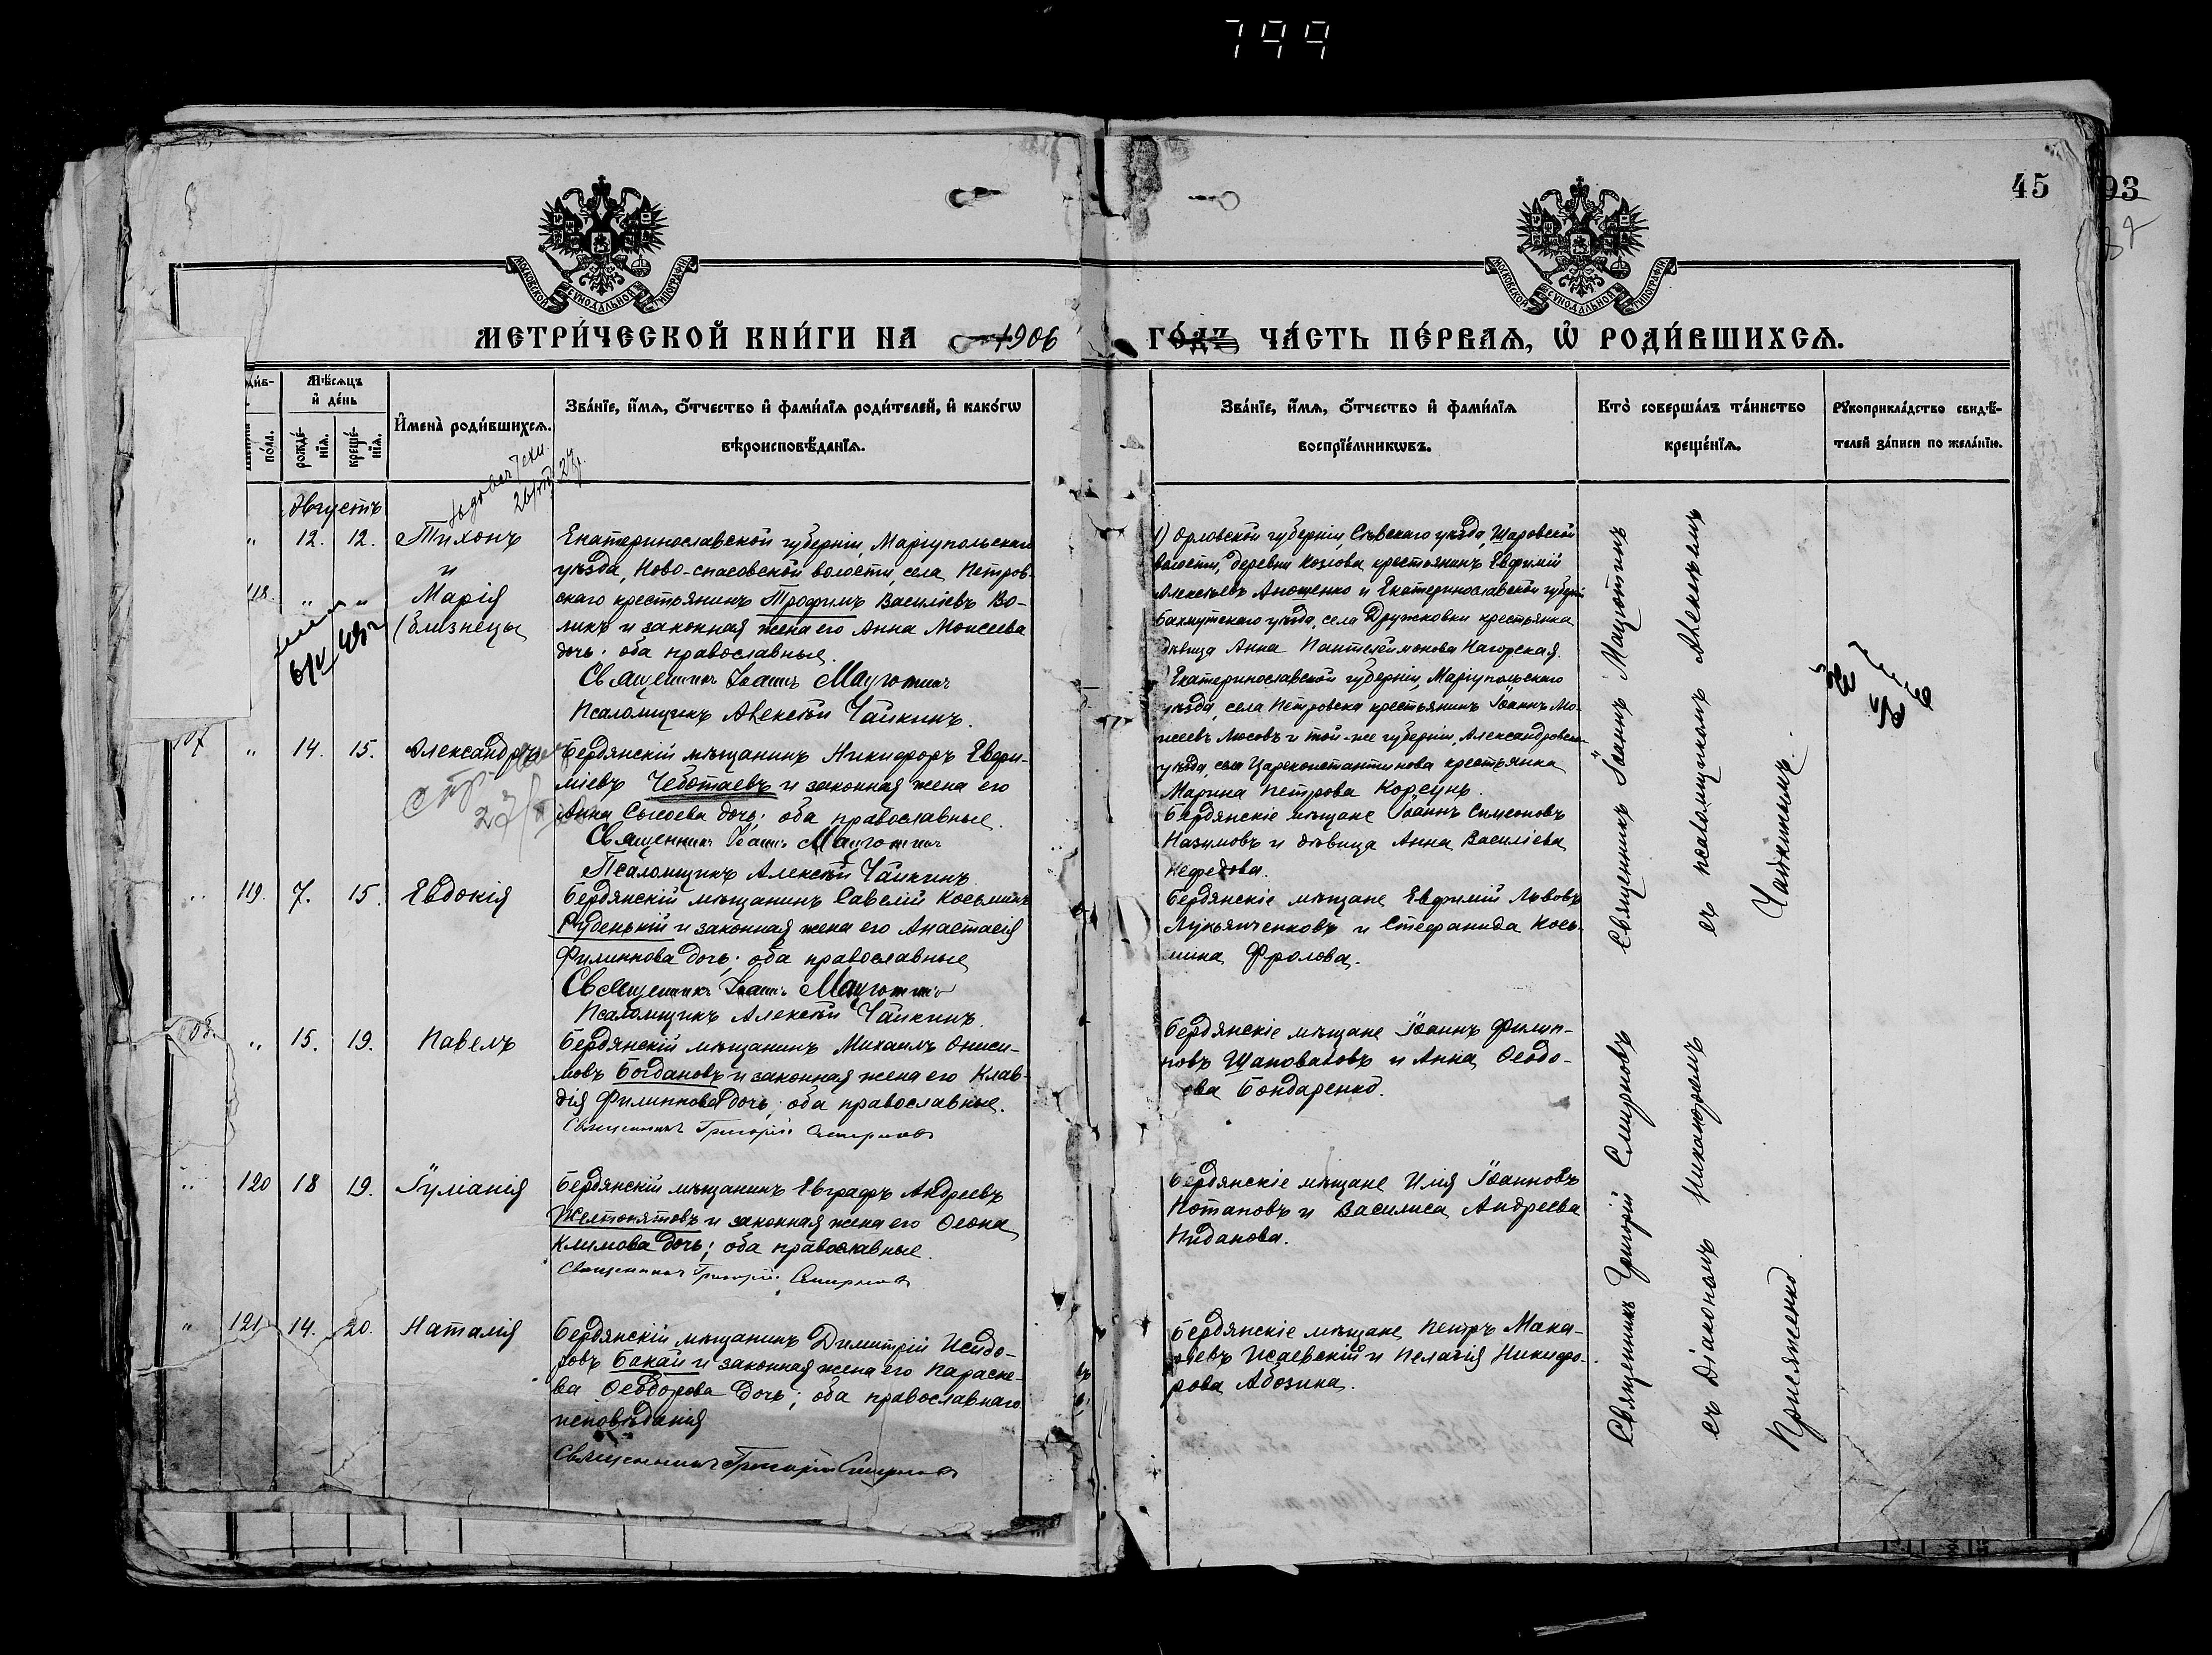 799
45
93
МОСКОВСКОЙ СѴНОДАЛЬНОЙ ТИПОГРАФІИ
МОСКОВСКОЙ СѴНОДАЛЬНОЙ ТИПОГРАФІИ
МЕТРИ́ЧЕСКОЙ КНИ́ГИ НА 1906
ГО́ДЪ ЧА́СТЬ ПЕ́РВАЯ, Ѡ РОДИ́ВШИХСЯ.
Мѣсяцъ
и де́нь
по́ла.
рожде́-
нія.
креще́-
нія.
Имена̀ роди́вшихся.
Зва́ніе, и́мя, о́тчество и фами́лія роди́телей, и како́гѡ
вѣроисповѣ́данія.
Зва́ніе, и́мя, о́тчество и фами́лія
воспріе́мникѡвъ.
Кто̀ соверша́лъ та́инство
креще́нія.
Рꙋкоприкла́дство свидѣ́-
телей за́писи по жела́нію.
Августъ
" 12. 12. Тихонъ
и
118. " " Марія
(близнецы
Екатеринославской губерніи, Маріупольскаго
уѣзда, Ново-спасовской волости, села Петров-
скаго крестьянинъ Трофимъ Василіевъ Во-
ликъ и законная жена его Анна Моисеева
дочь; оба православные.
Священникъ Іоаннъ Мацготинъ
Псаломщикъ Алексѣй Чайкинъ.
1) Орловской губерніи, Сѣвскаго уѣзда, Шаровской
волости, деревни Козлова крестьянинъ Евфимій
Алексѣевъ Аношенко и Екатеринославской губерніи
Бахмутскаго уѣзда, села Дружковки крестьянка
дѣвица Анна Пантелеймонова Нагорская.
Екатеринославской губерніи, Маріупольскаго
уѣзда, села Петровска крестьянинъ Іоаннъ Мо-
исеевъ Люсовъ и той-же губерніи, Александровска-
уѣзда, села Цареконстантинова крестьянка
Марина Петрова Корсунь.
" 14. 15. Александръ
Бердянскій мѣщанинъ Никифоръ Евфи-
міевъ Чеботаевъ и законная жена его
Анна Сысоева дочь; оба православные.
Священникъ Іоаннъ
Псаломщикъ Алексѣй Чайкинъ
Бердянскіе мѣщане Іоаннъ Симеоновъ
Назимовъ и дѣвица Анна Василіева
Нефедова.
" 119. 7. 15. Евдокія
Бердянскій мѣщанинъ Савелій Косьминъ
Руденькій и законная жена его Анастасія
Филиппова дочь; оба православные
Священникъ Іоаннъ
Псаломщикъ Алексѣй Чайкинъ.
Бердянскіе мѣщане Евфимій Львовъ
Лукьянченковъ и Стефанида Кось-
мина Фролова.
" 15. 19. Павелъ
Бердянскій мѣщанинъ Михаилъ Ониси-
мовъ Богдановъ и законная жена его Клав-
дія Филиппова дочь; оба православные.
Священникъ Григорій Смирновъ
Бердянскіе мѣщане Іоаннъ Филип-
повъ Шаповаловъ и Анна Ѳеодо-
ова Бондаренко.
" 120 18 19. Іуліанія
Бердянскій мѣщанинъ Евграфъ Андреевъ
Желтопятовъ и законная жена его Ѳеона
Климова дочь; оба православные.
Священникъ Григорій Смирновъ
Бердянскіе мѣщане Илія Іоанновъ
Потаповъ и Василиса Андреева
Пиданова.
" 121 14. 20. Наталія
Бердянскій мѣщанинъ Димитрій Исидо-
ровъ Бакай и законная жена его Параске-
ва Ѳеодорова дочь; оба православнаго
исповѣданія
Священникъ Григорій Смирновъ
Бердянскіе мѣщане Петръ Мака-
рьевъ Исаевскій и Пелагія Никифо-
рова Абозина.
Священникъ Іоаннъ
съ псаломщикомъ Алексѣемъ
Чайкинымъ.
Священникъ Григорій Смирновъ
съ діакономъ Никаноромъ